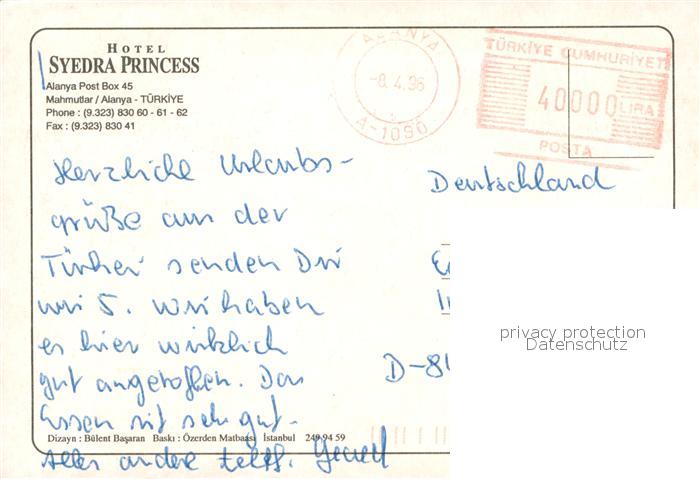 HOTEL
SYEDRA PRINCESS
Alanya Post Box 45
Mahmutlar / Alanya - TÜRKİYE
Phone : (9.323) 830 60 - 61 - 62
Fax : (9.323) 830 41
ALANYA
-8.4.96
A-1090
TÜRKİYE CUMHURİYETİ
40000 LIRA
POSTA
Herzliche Urlaubs-
grüße aus der
Türkei senden Dir
wir 5. Wir haben
es hier wirklich
gut angetroffen. Das
Essen ist sehr gut.
Alles andere telef.
Deutschland
D-8
privacy protection
Datenschutz
Dizayn : Bülent Başaran Baskı : Özerden Matbaası İstanbul 249 94 59